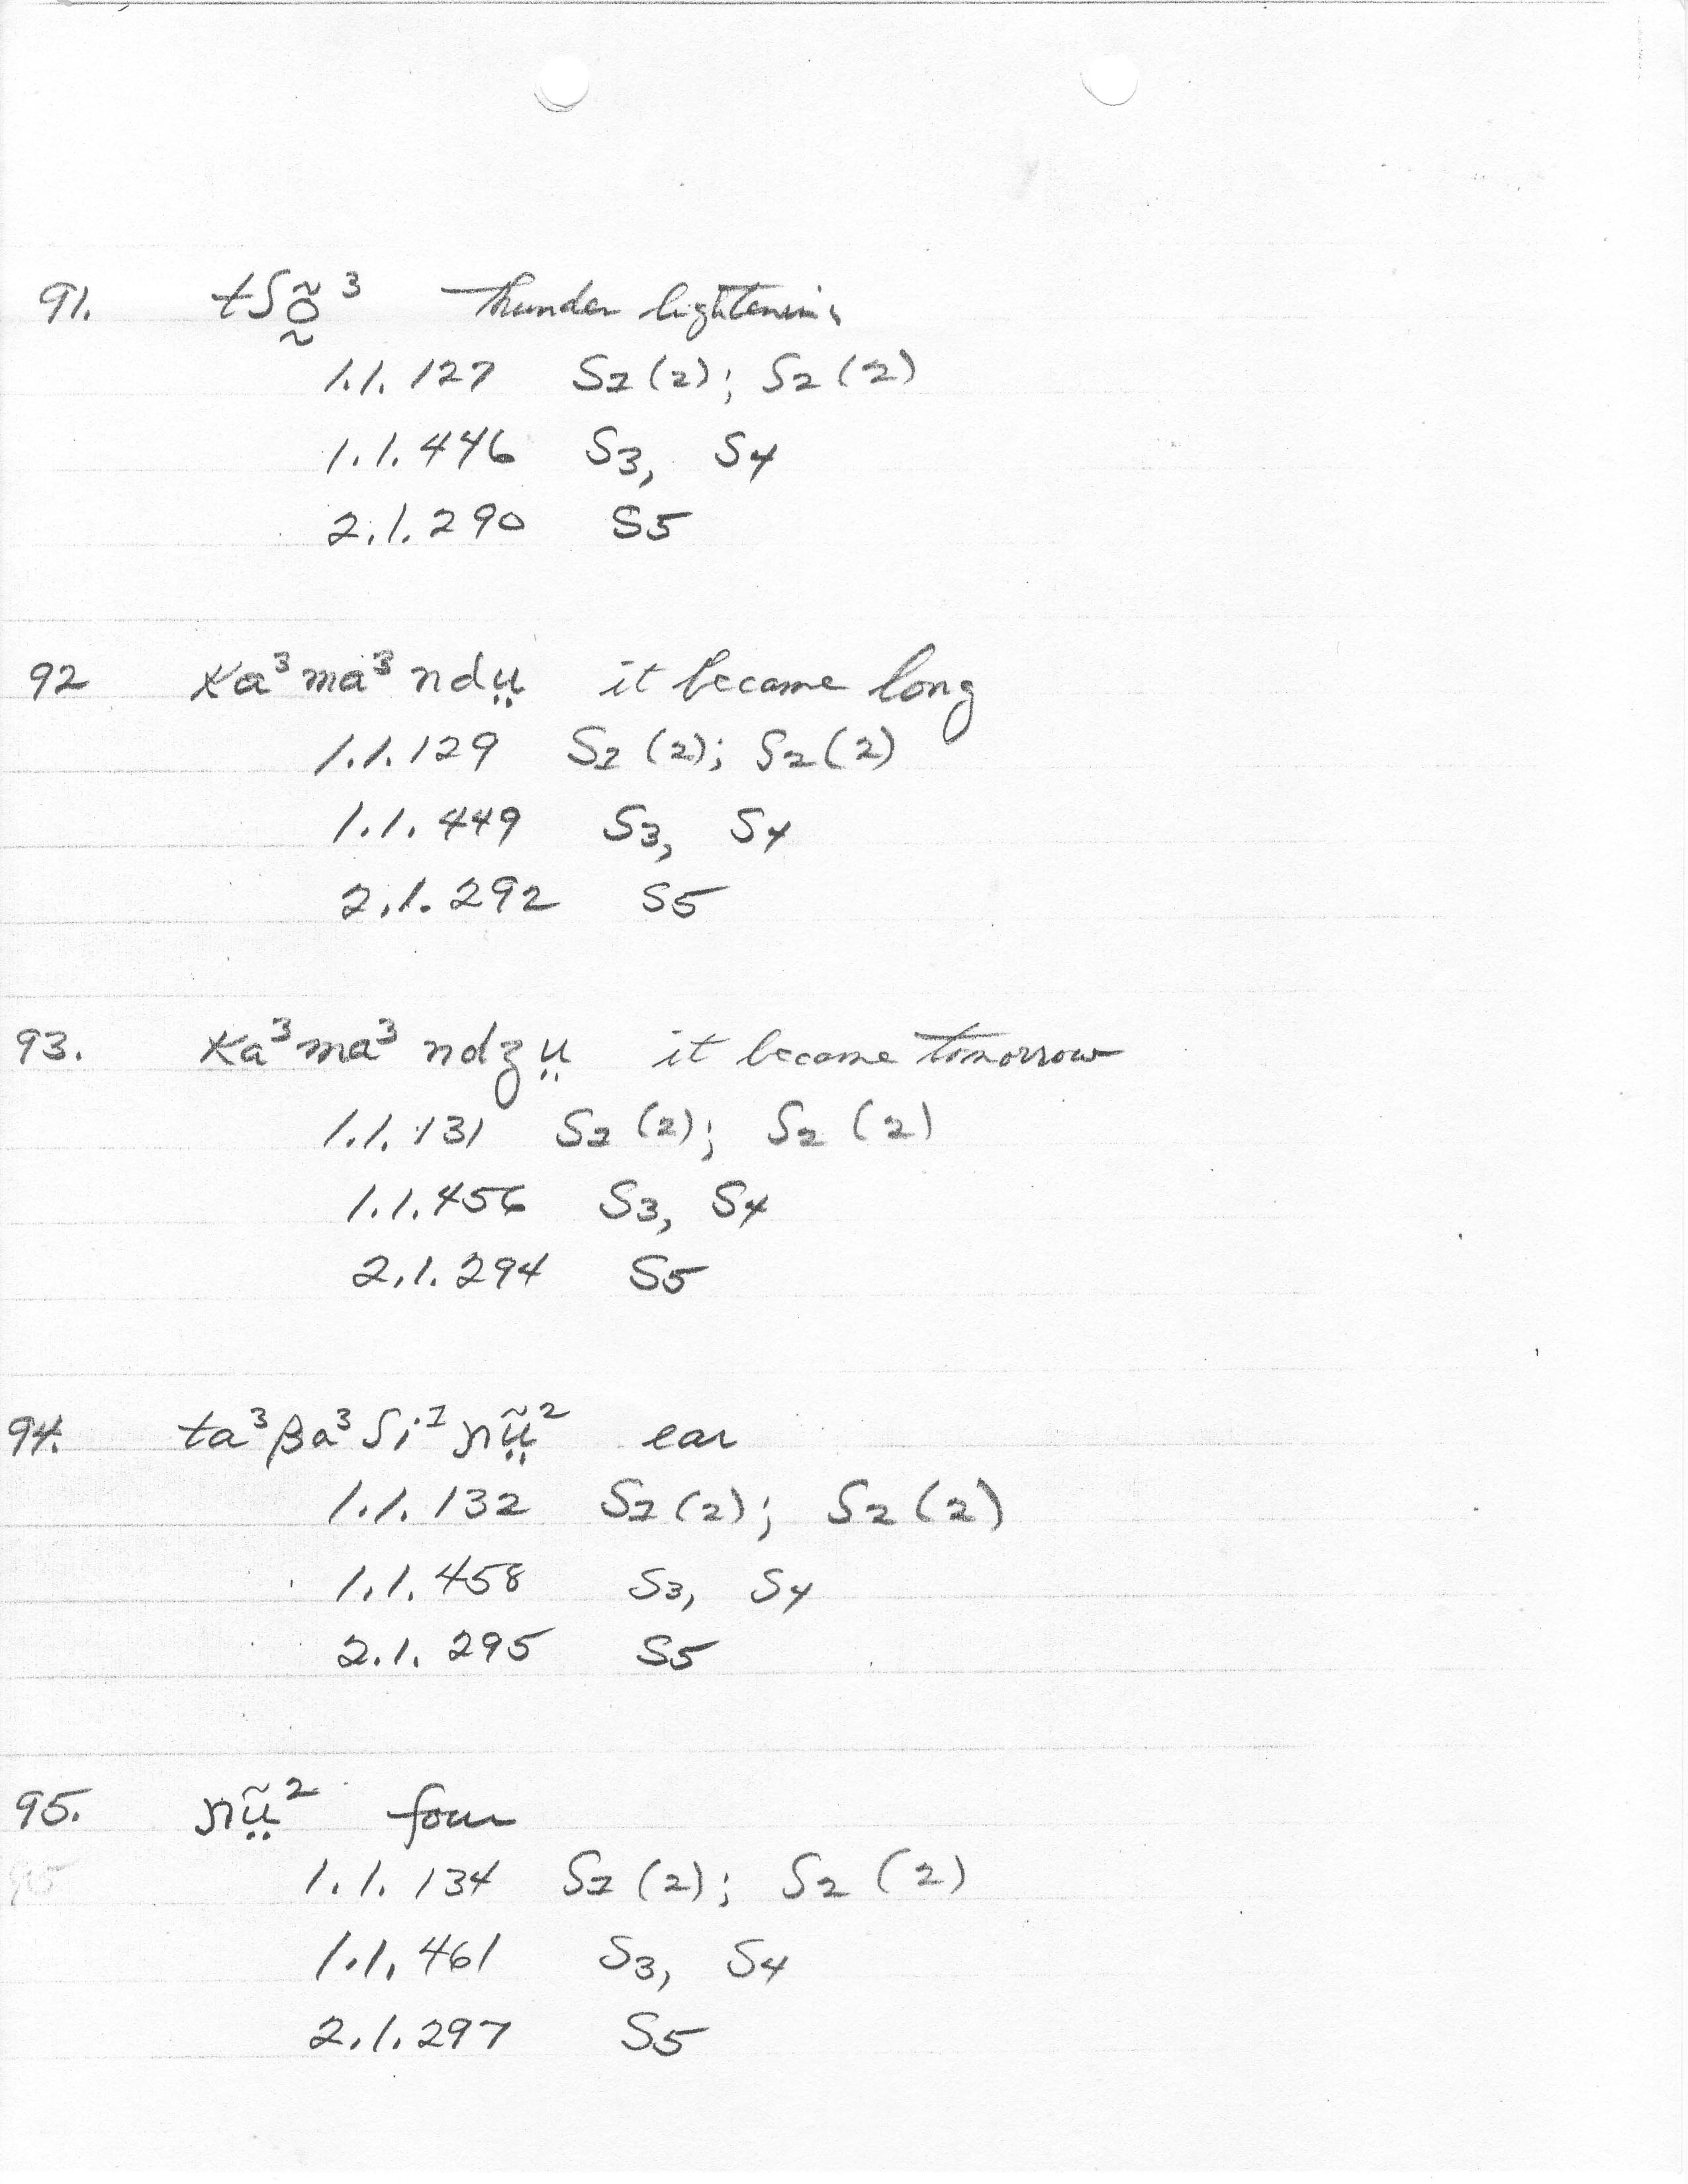 91. tʃõ̰³ thunder lightening
1.1.127 S1(2); S2(2)
1.1.446 S3, S4
2.1.290 S5
92 ka³ma³ndṳ it became long
1.1.129 S1(2); S2(2)
1.1.449 S3, S4
2.1.292 S5
93. ka³ma³ndzṳ it became tomorrow
1.1.131 S1(2); S2(2)
1.1.456 S3, S4
2.1.294 S5
94. ta³βa³ʃi¹ɲṳ̃² ear
1.1.132 S1(2); S2(2)
1.1.458 S3, S4
2.1.295 S5
95. ɲṳ̃² four
95
1.1.134 S1(2); S2(2)
1.1.461 S3, S4
2.1.297 S5